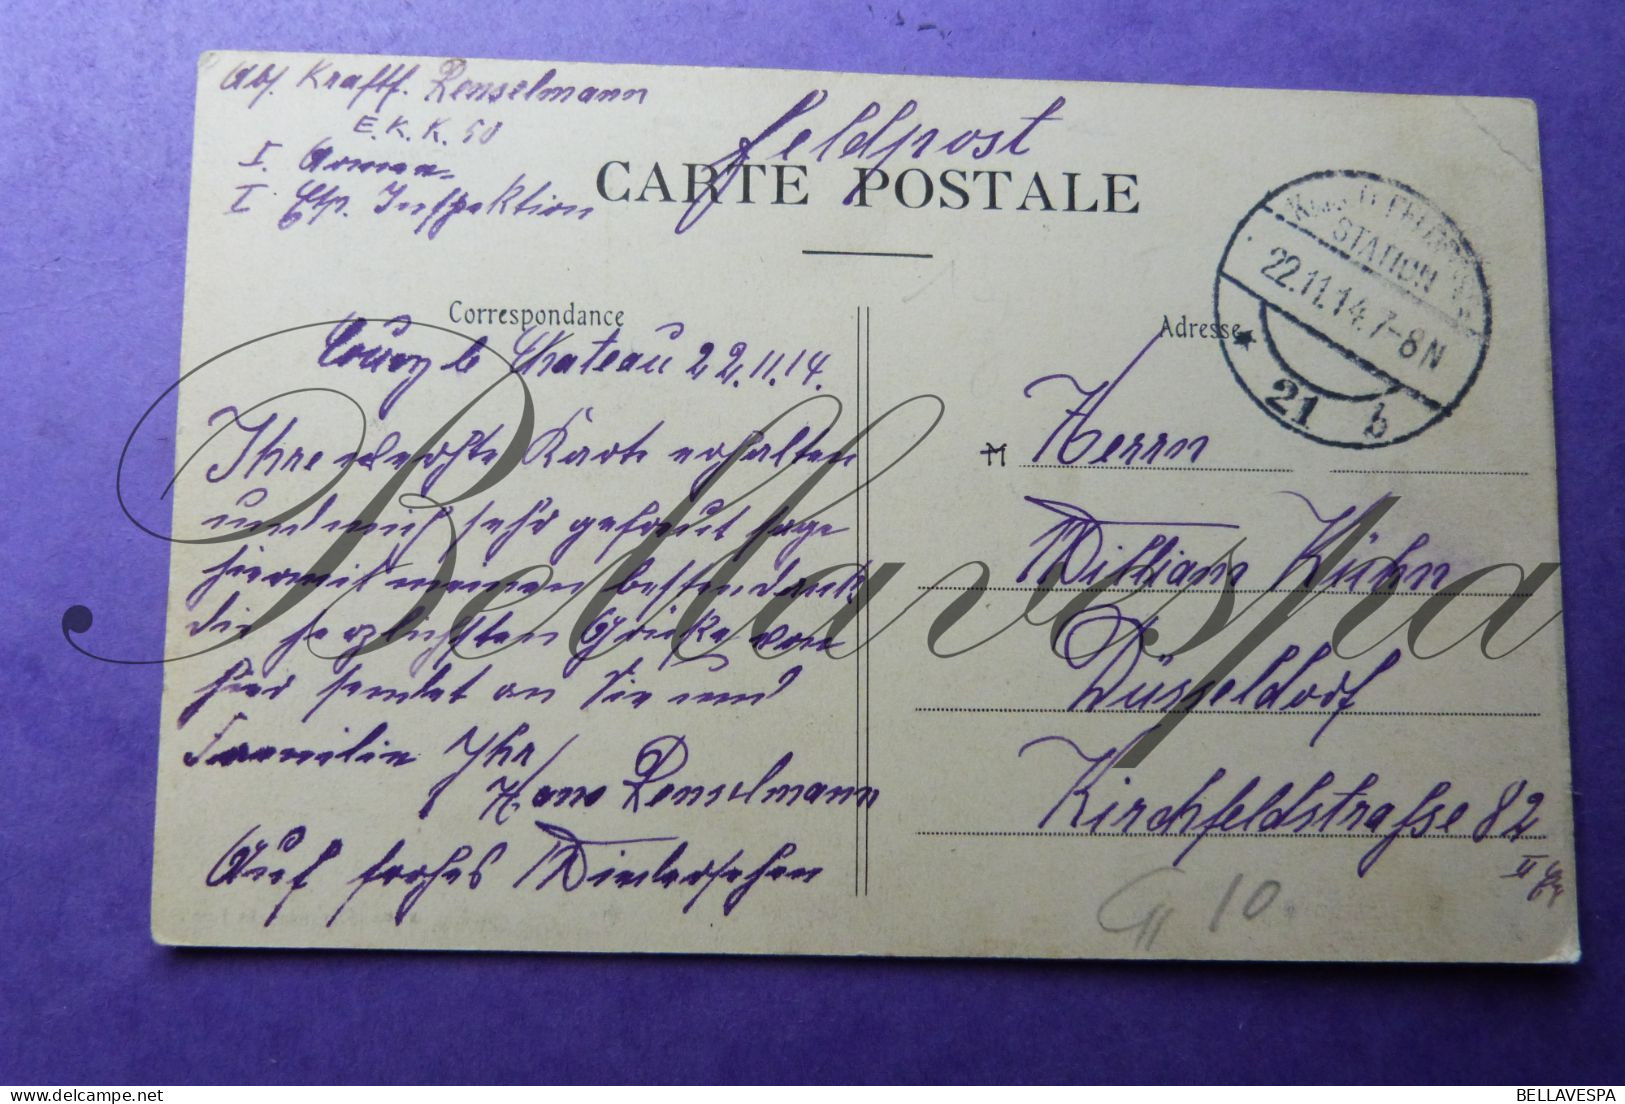 Abs. Kraftf. Renselmann
E.K.K. 50
I. Armee
I Etp. Inspektion
Feldpost
CARTE POSTALE
STATION
22.11.14. 7-8N
21 b
Correspondance
Adresse
Coucy le Chateau 22.11.14.
Ihre werthe Karte erhalten
und mich sehr gefreut sage
hiermit meinen besten Dank.
die herzlichsten Grüße von
hier sendet an Sie und
Familie Ihr
Hans Renselmann
Auf frohes Wiedersehen
M
Herrn
William Kühn
Düsseldorf
Kirchfeldstrasse 82
II
10.
Bellavespa
BELLAVESPA